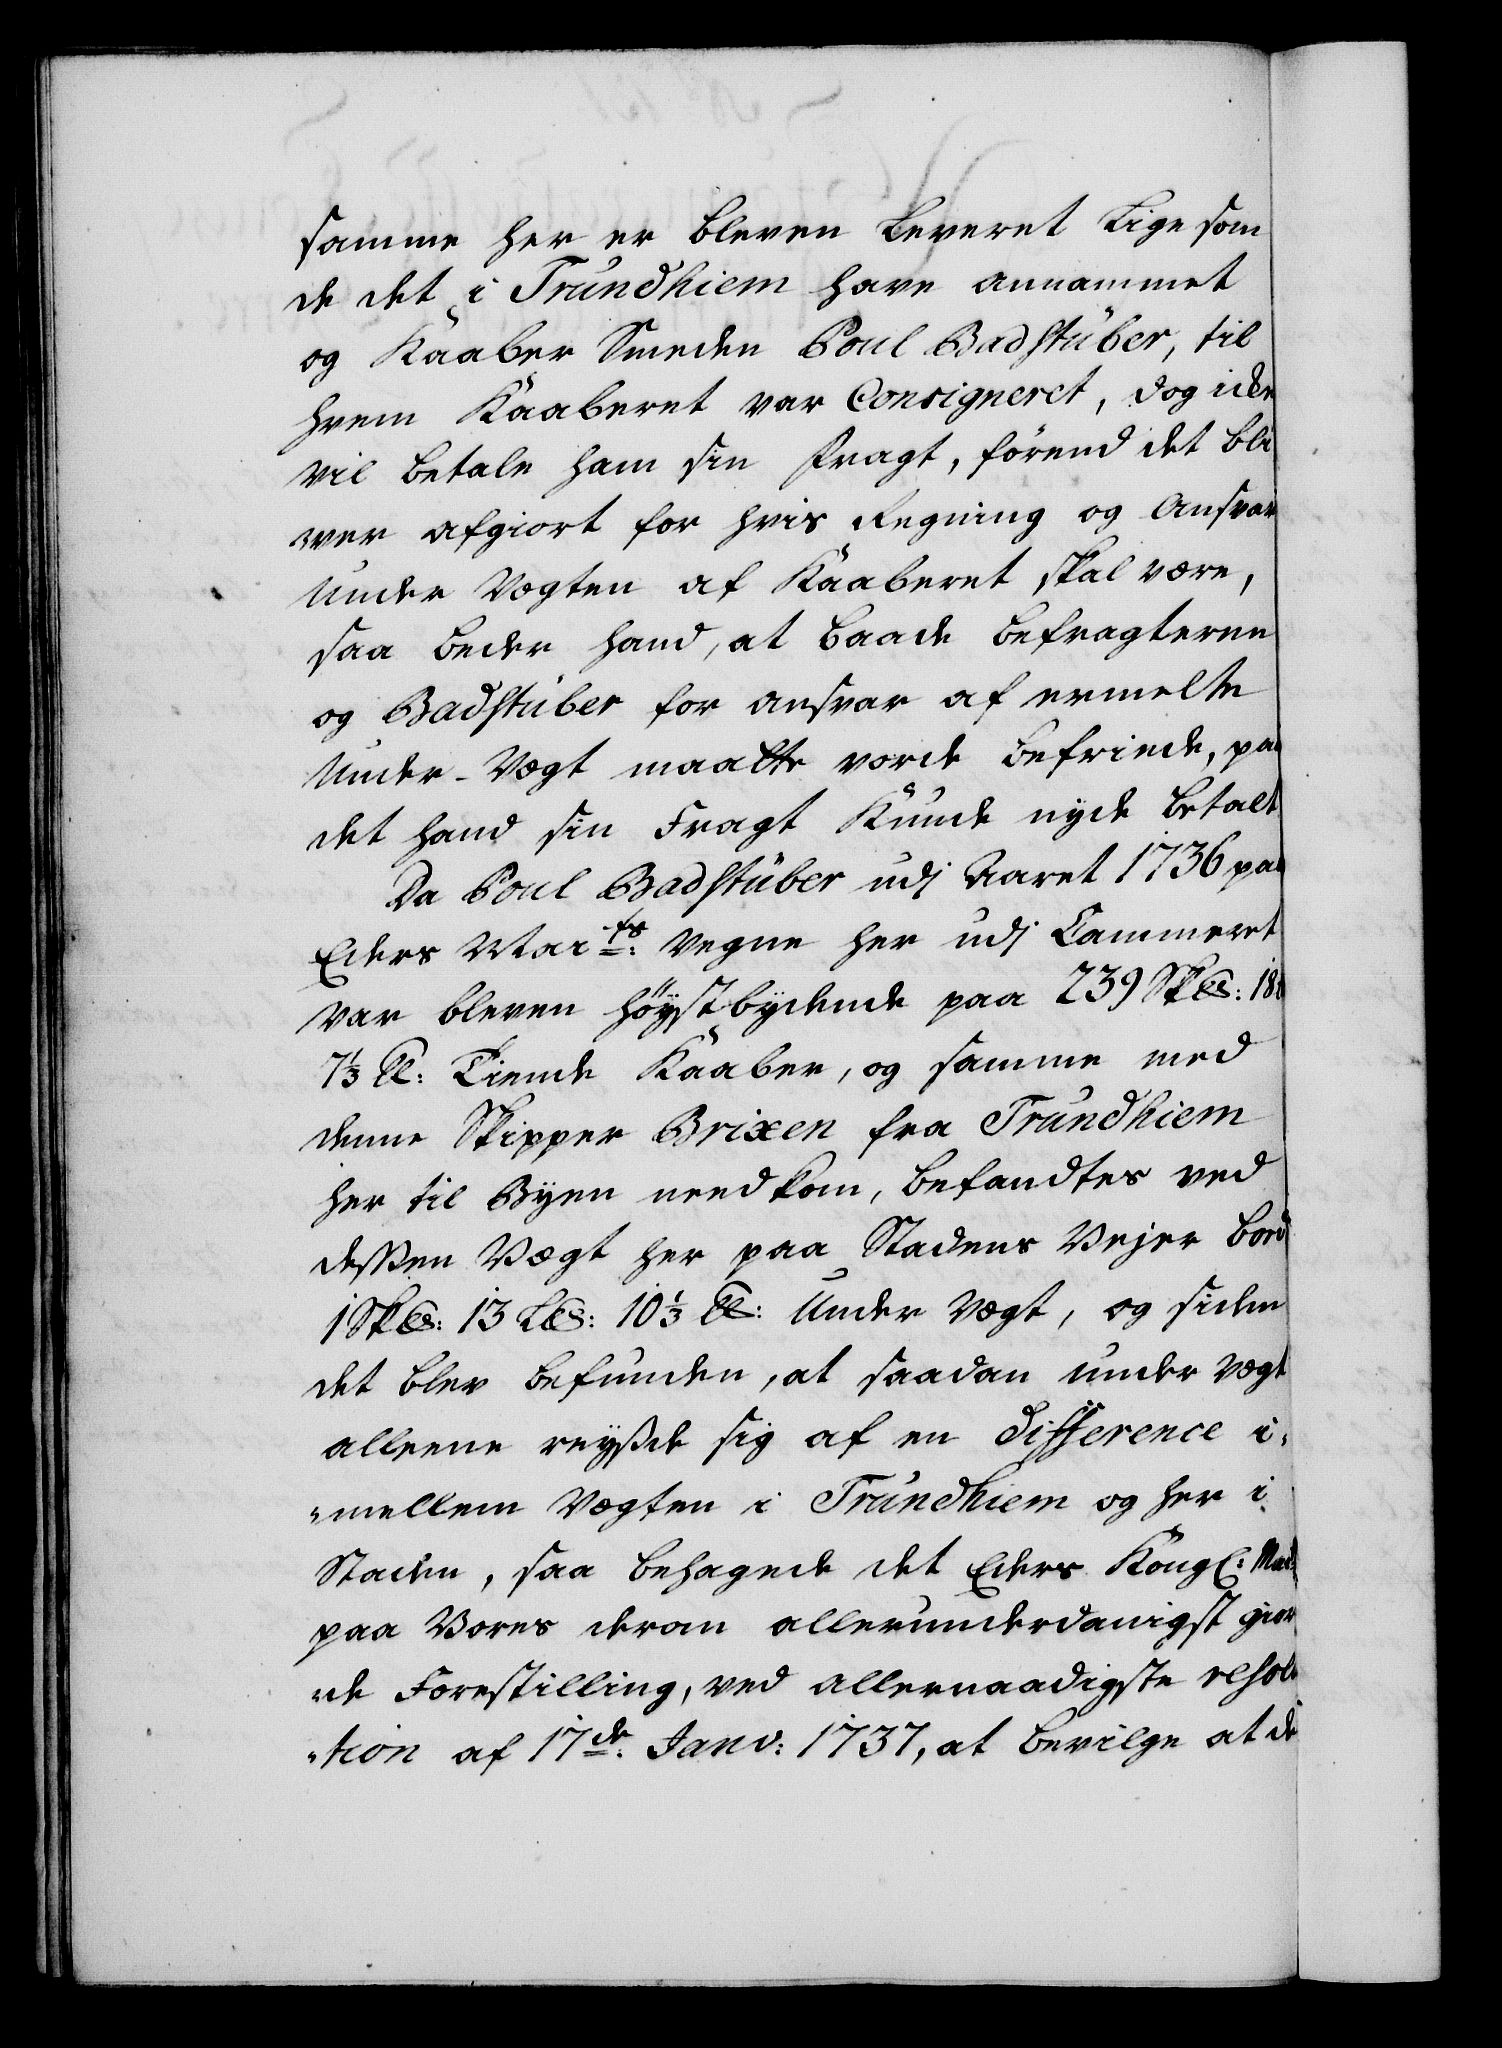 samme her er bleven leveret lige som
de det i Trundhiem have annammet
og Kaaber Smeden Poul Badstüber, til
hvem Kaaberet var Consigneret, dog icke
vil betale ham sin fragt, förend det bli
wer afgiort for hvis Regning og Ansvar
under Vegten af Kaaberet skal være,
saa beder hand, at baade befragterne
og Badstüber for ansvar af ermelte
Under-Vegt maatte vorde befriede, paa
det hand sin Fragt kunde nyde betalt
Da Poul Badstüber udj Aaret 1736 paa
Eders Mai.ts: vegne her udj Cammeret
var bleven höystbydende paa 239 Sk℔: 18
7⅓ ℔: Tiende Kaaber, og samme med
denne Skipper Brixen fra Trundhiem
her til Byen needkom, befandtes ved
dessen Vægt her paa Stadens Vejer bord
1 Sk℔: 13 L℔: 10⅓ ℔: Under Vegt, og siden
det blev befunden, at saadan under vegt
alleene reyste sig af en Difference i-
"mellem Vegten i Trundhiem og her i
Staden, saa behagede det Eders Kongl: Mait
paa Vores derom allerunderdanigst gior
"de Forestilling, ved allernaadigste resolu
"tion af 17de: Janv: 1737, at bevilge at de